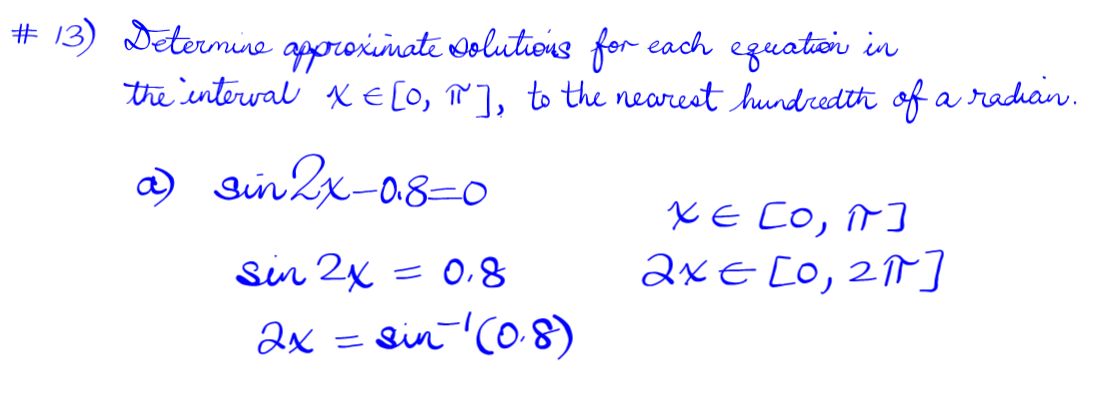 # 13) Determine approximate solutions for each equation in
the interval x ∈ [0, π], to the nearest hundredth of a radian.
a) sin2x-0.8=0
x ∈ [0, π]
sin 2x = 0.8
2x ∈ [0, 2π]
2x = sin⁻¹(0.8)